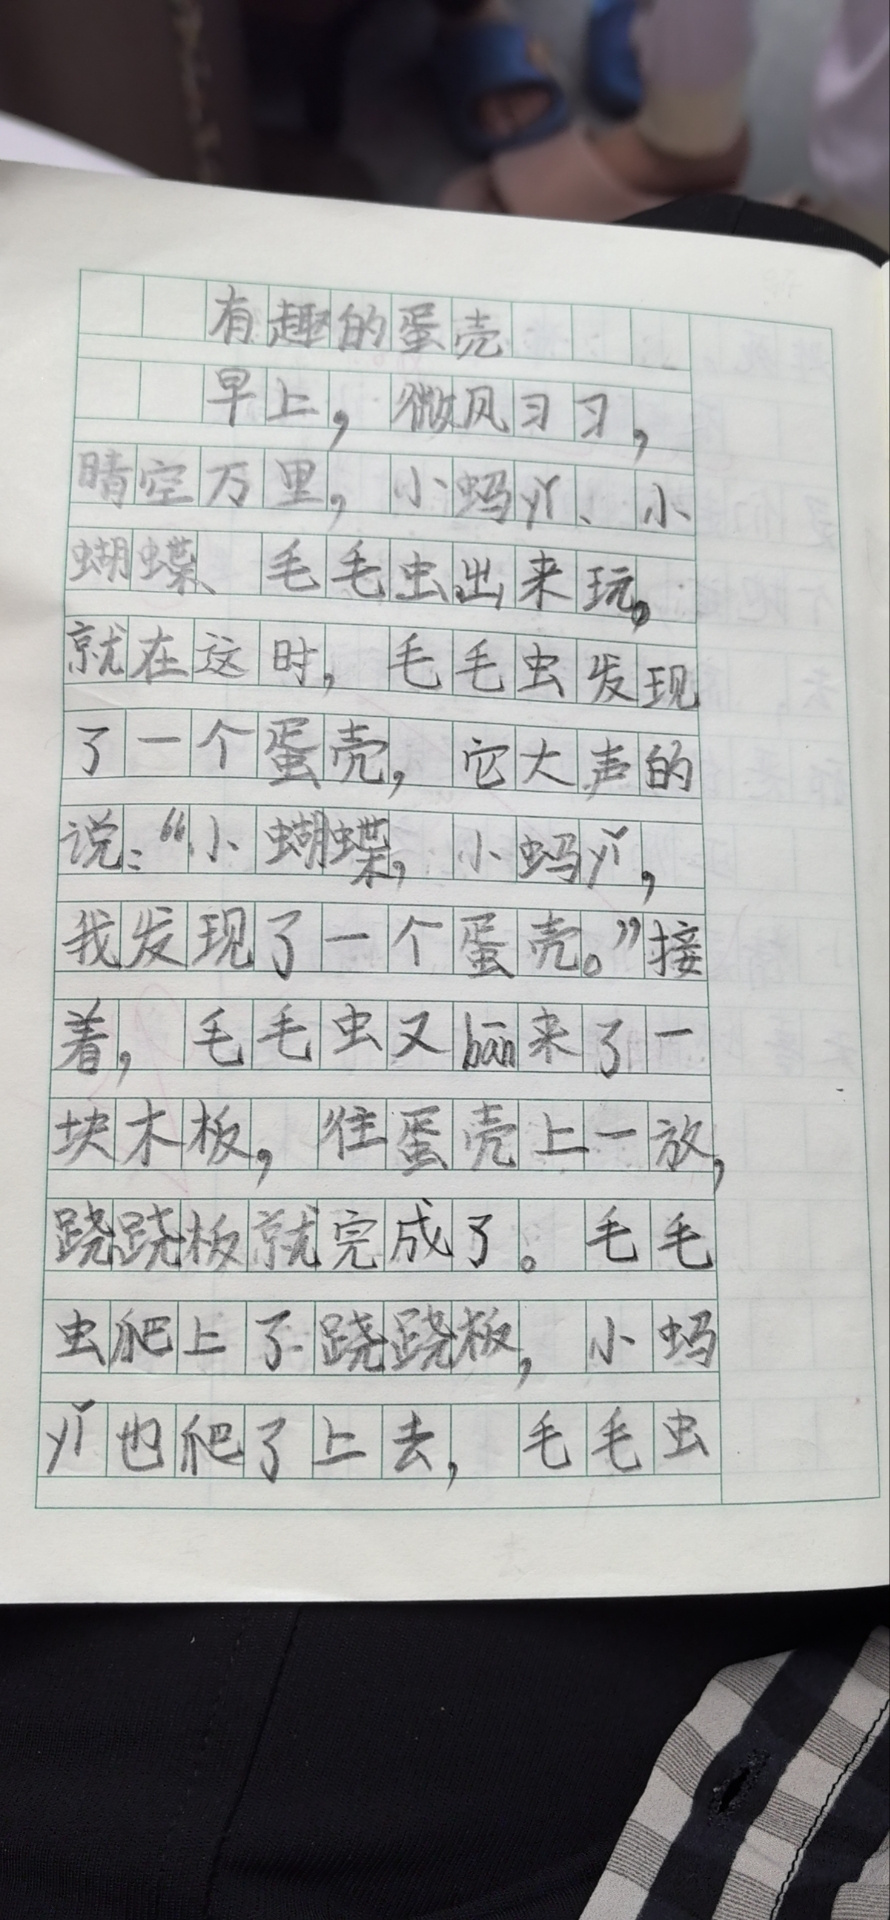 有趣的蛋壳
早上，微风习习，
晴空万里，小蚂yǐ、小
蝴蝶、毛毛虫出来玩。
就在这时，毛毛虫发现
了一个蛋壳，它大声的
说：“小蝴蝶，小蚂yǐ，
我发现了一个蛋壳。”接
着，毛毛虫又bān来了一
块木板，往蛋壳上一放，
跷跷板就完成了。毛毛
虫爬上了跷跷板，小蚂
yǐ也爬了上去，毛毛虫